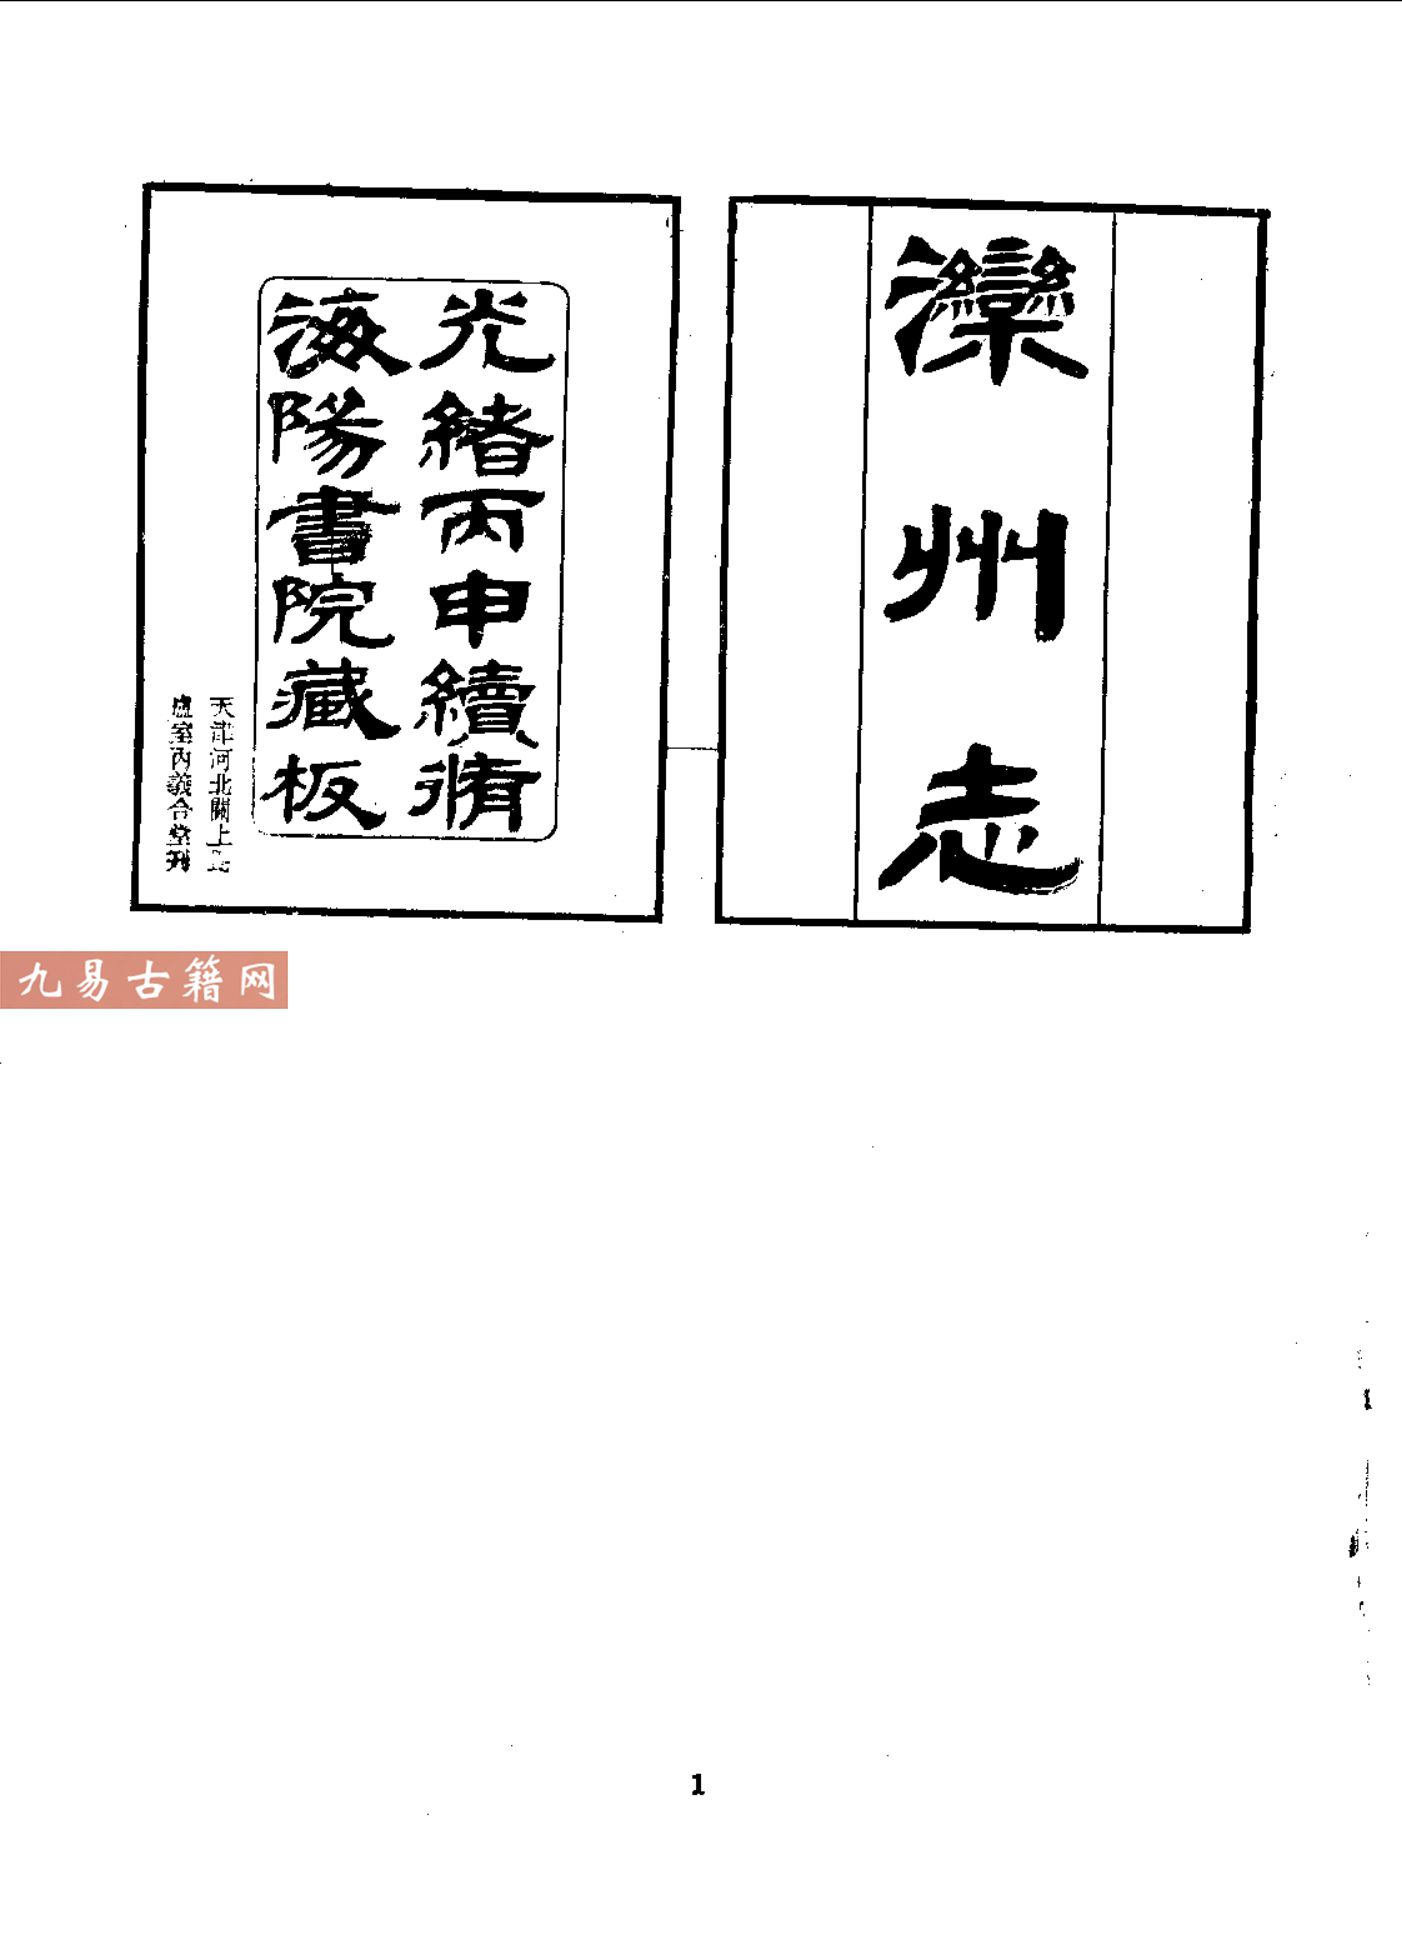 灤州志
光緒丙申續脩
海陽書院藏板
天津河北關上
盧室內義合堂刊
九易古籍网
1